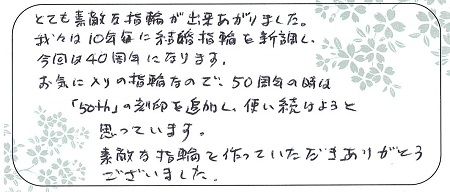 とても素敵な指輪が出来あがりました。
我々は10年毎に結婚指輪を新調し、
今回は40周年になります。
お気に入りの指輪なので、50周年の時は
「50th」の刻印を追加し、使い続けようと
思っています。
素敵な指輪を作っていただきありがとう
ございました。